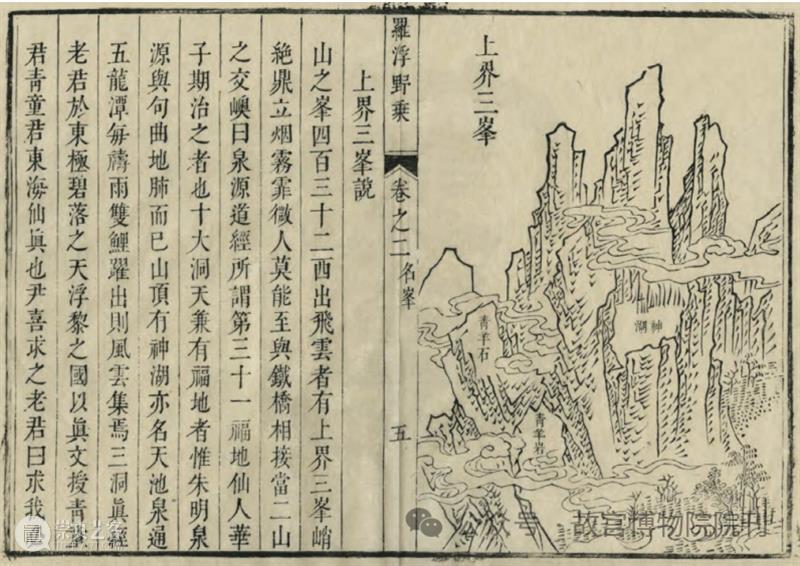 上界三峯
神湖
青羊石
青羊岩
羅浮野乗
卷之二
名峯
五
上界三峯說
山之峯四百三十二西出飛雲者有上界三峯峭
絶鼎立烟霧霏微人莫能至與鐵橋相接當二山
之交曰泉源道經所謂第三十一福地仙人華
子期治之者也十大洞天兼有福地者惟朱明泉
源與句曲地肺而已山頂有神湖亦名天池泉通
五龍潭每禱雨雙鯉躍出則風雲集焉三洞眞經
老君於東極碧落之天浮黎之國以眞文授青
君青童君東海仙眞也尹喜求之老君曰求我
号 故宫博物院院刊